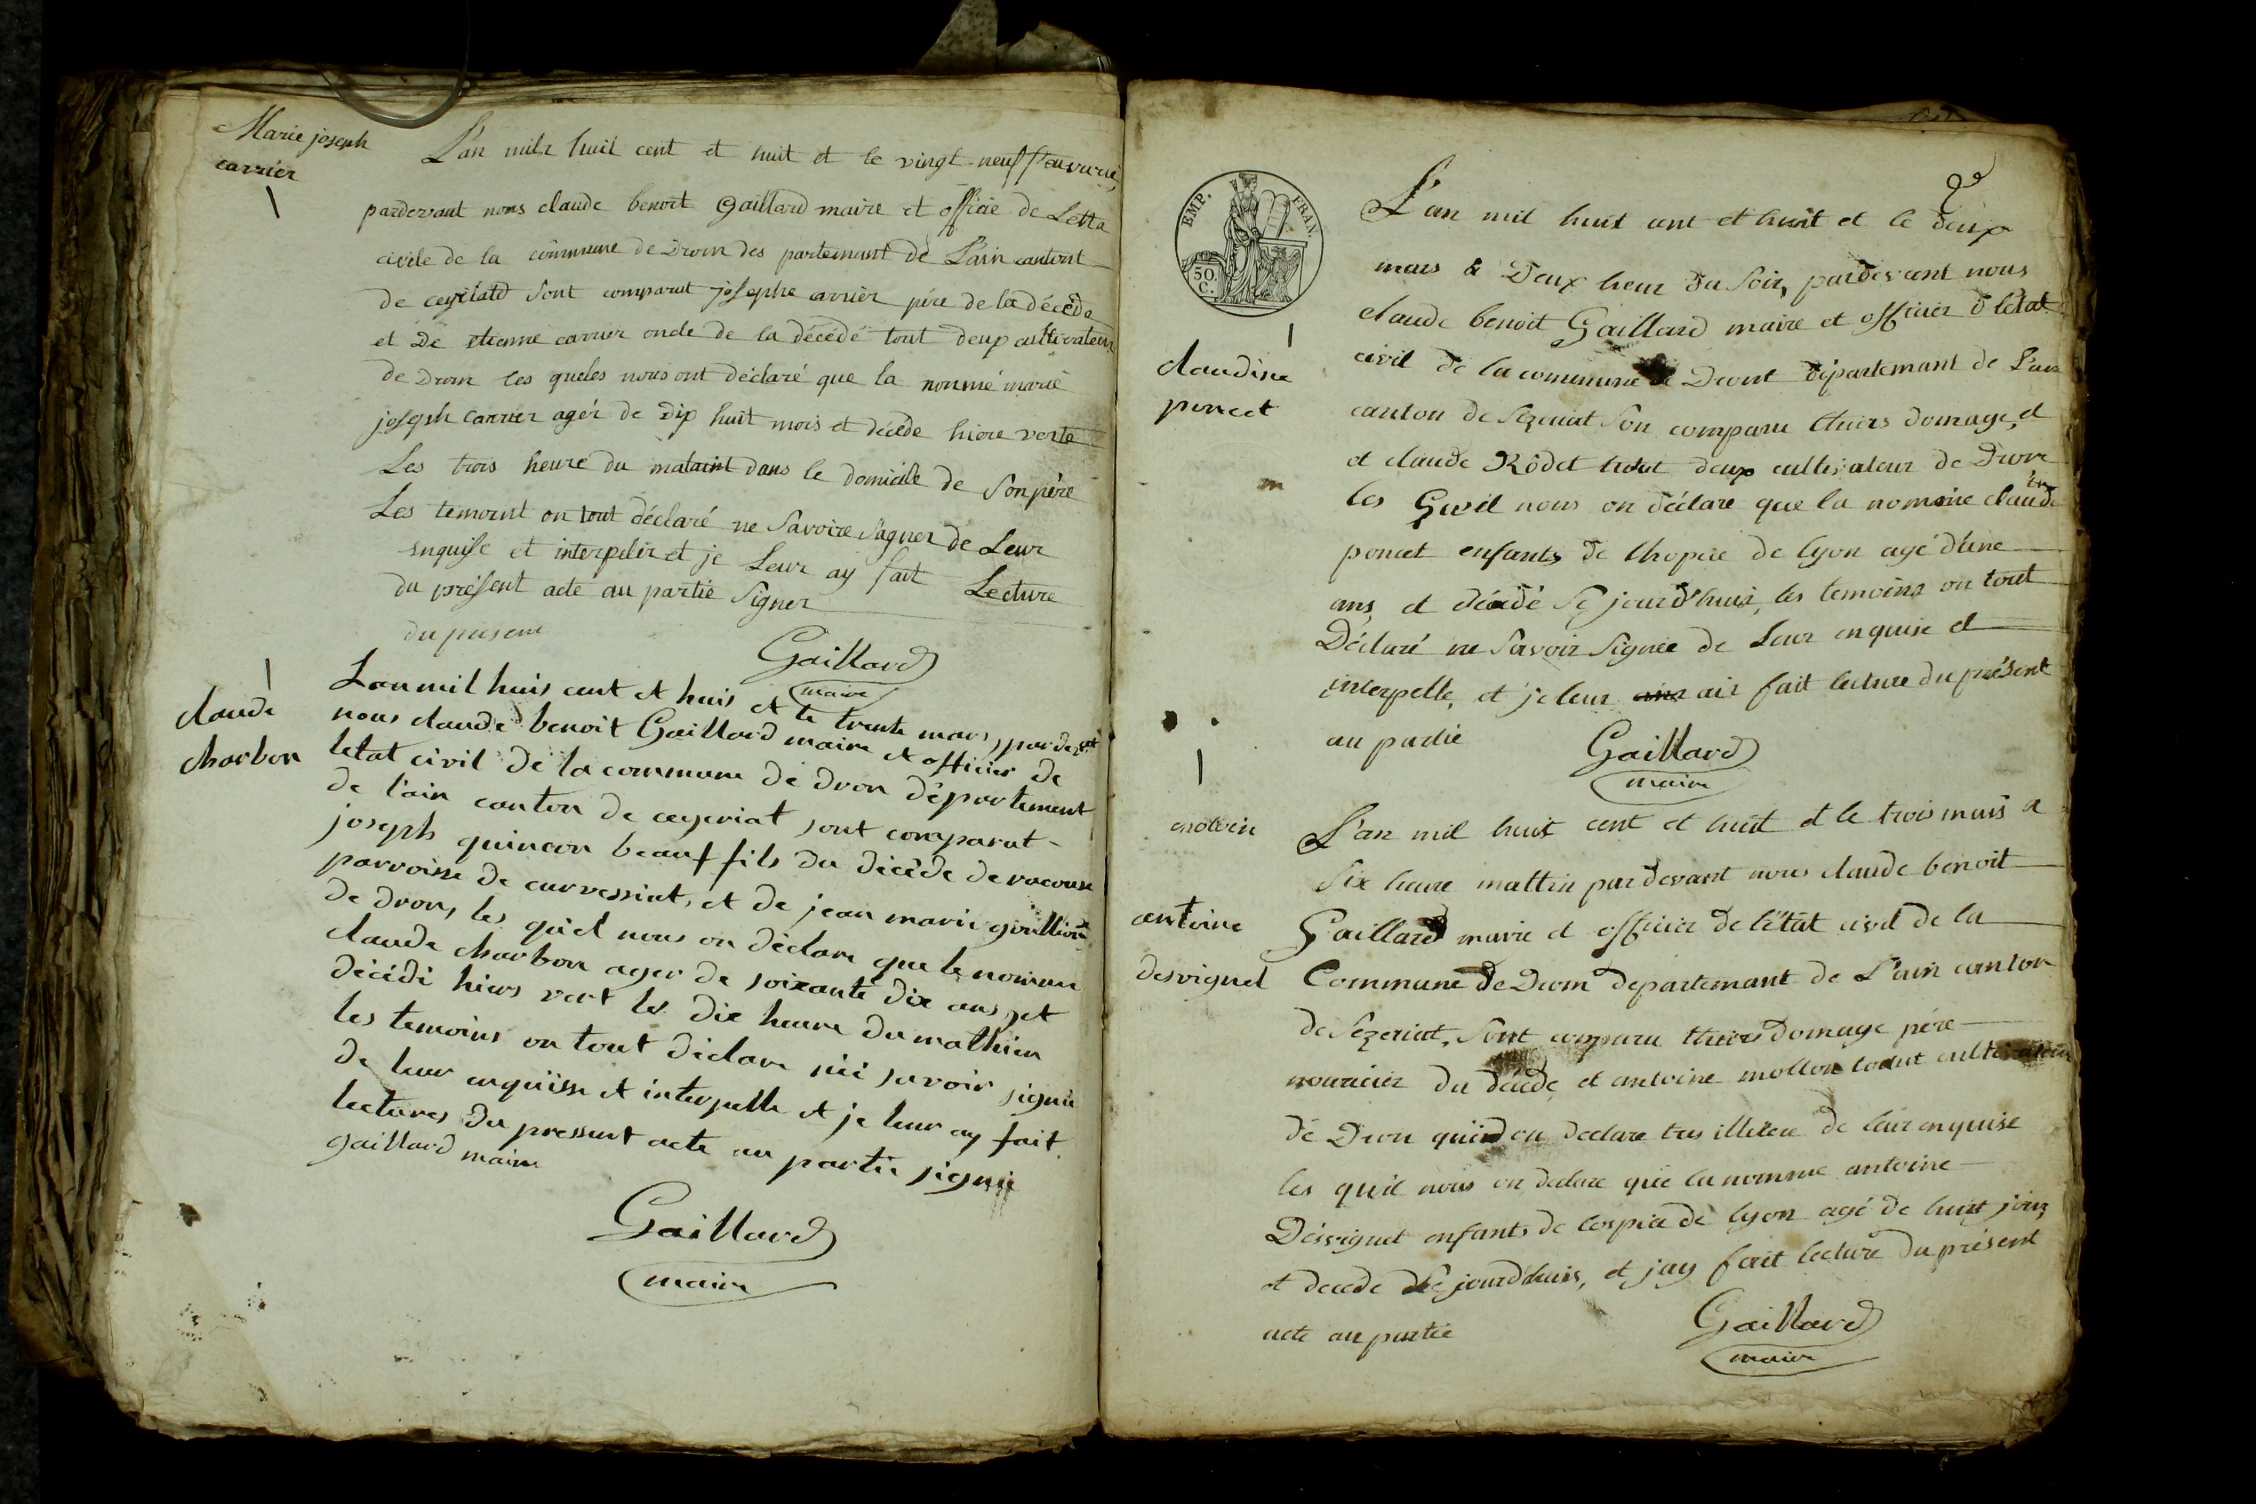 Marie joseph
carrier
L'an mile huit cent et huit et le vingt neuf
pardevant nous claude benoit gaillard maire et officie de Letta
civile de la commune de Drom des partemant de L'ain cantont
de sont comparut josephe carrier pére de la décéde
et De etienne carrier oncle de la décédé tout deux cultivateur
de Drom les queles nous ont déclaré que la nommé marie
joseph carrier agér de Dix huit mois et décéde hiere verte
Les trois heure du mataint dans le domicile de Son père
Les temoint on tout déclaré ne Savoire Signer de Leur
enquise et interpelér et je Leur ay fait Lecture
du présent acte au partie Signer
du present
Gaillard
maire
claude
charbon
Lan mil huis cent et huis et le trente mars, pardevat
nous claude benoit Gaillard maire et officier de
letat civil de la commune de dron département
de l'ain canton de ceyeriat sont comparut
joseph quincon beauf fils du décéde de
parroisse de curvessiat, et de jean marie
de dron, les quel nous on déclare que le nomme
claude charbon ager de soixante dix ans, et
décédé hiers vert les dix heure du mathien
les temoins on tout déclare savoir signie
de leur enquisse et interpelle et je leur ay fait
lectures du pressent acte au partie signie
gaillard maire
Gaillard
maire
EMP. FRAN.
50 C.
L'an mil huit cent et huit et le deux
mars à Deux heur du Soir, pardevant nous
claude benoit Gaillard maire et officier d létat
claudine
poncet
civil de la commune de Dront département de L'ain
canton de Sezeriat Son comparu domage, et
et claude Rôdet toute deux cultivateur de Drom
les Quel nous on déclare que la nomme claudine
poncet enfants de lhopice de lyon agé d'une
ans, et décédé Se jourd'huis, les temoins on tout
Déclaré ne Savoir Signée de Leur enquise et
interpelle, et je leur ai fait lecture du présent
au partie
Gaillard
maire
antoine
desvignet
L'an mil huit cent et huit et le trois mars a
Six heure mattin pardevant nous claude benoit
Gaillard maire et officier de l'état civil de la
Commune de Drom departemant de L'ain canton
de Sezeriat, Sont comparu domage père
nouricier du décéde et antoine mollon toout cultivateur
de Dron on declare tres illetere de leur enquise
les quil nous on declare que la nomme antoine
Désvignet enfants de lospice de lyon agé de huit jour,
et decede Se jourdhuis, et jay fait lecture du présent
acte au partie
Gaillard
maire